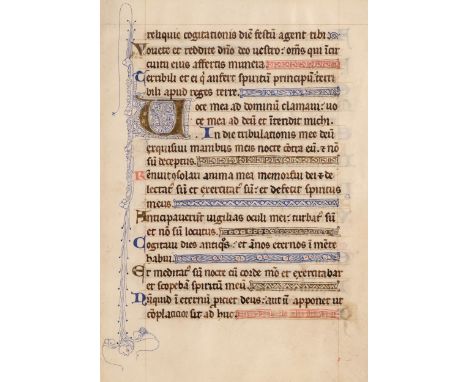 reliquie cogitationis diē festū agent tibi
Vouete et reddite dn̄o deo vestro: om̄s qui in cir
cuitu eius affertis munera
Terribili et ei q̇ aufert spiritū principū: terri
bili apud reges terre
Voce mea ad dominū clamaui: uo
ce mea ad deū et ītendit michi.
In die tribulationis mee deū
exquisiui manibus meis nocte cōtra eū: & nō
sū deceptus
Rēnuit ꝯsolari anima mea memor fui dei & de
lectat᷒ sū et exercitat᷒ sū: et defecit spiritus
meus
Anticipauerūt uigilias oculi mei: turbat᷒ sū
et nō sū locutus
Cogitaui dies antiqōs: et ānos eternos ī mēte
habui
Et meditat᷒ sū nocte cū corde mēo et exercitabar
et scopebā spiritū meū
Nūquid ī eternū ꝓiciet deus: aut nō apponet ut
cōplacitior sit ad huc